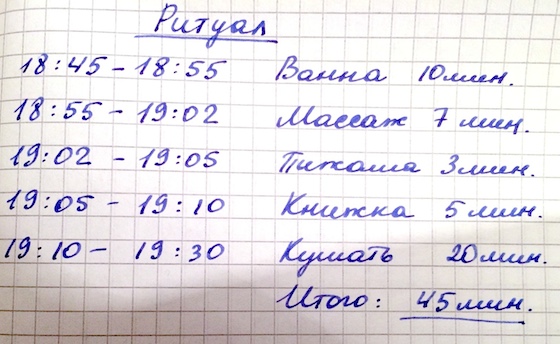 Ритуал
18:45 - 18:55 Ванна 10 мин.
18:55 - 19:02 Массаж 7 мин.
19:02 - 19:05 Пижама 3 мин.
19:05 - 19:10 Книжка 5 мин.
19:10 - 19:30 Кушать 20 мин.
Итого: 45 мин.